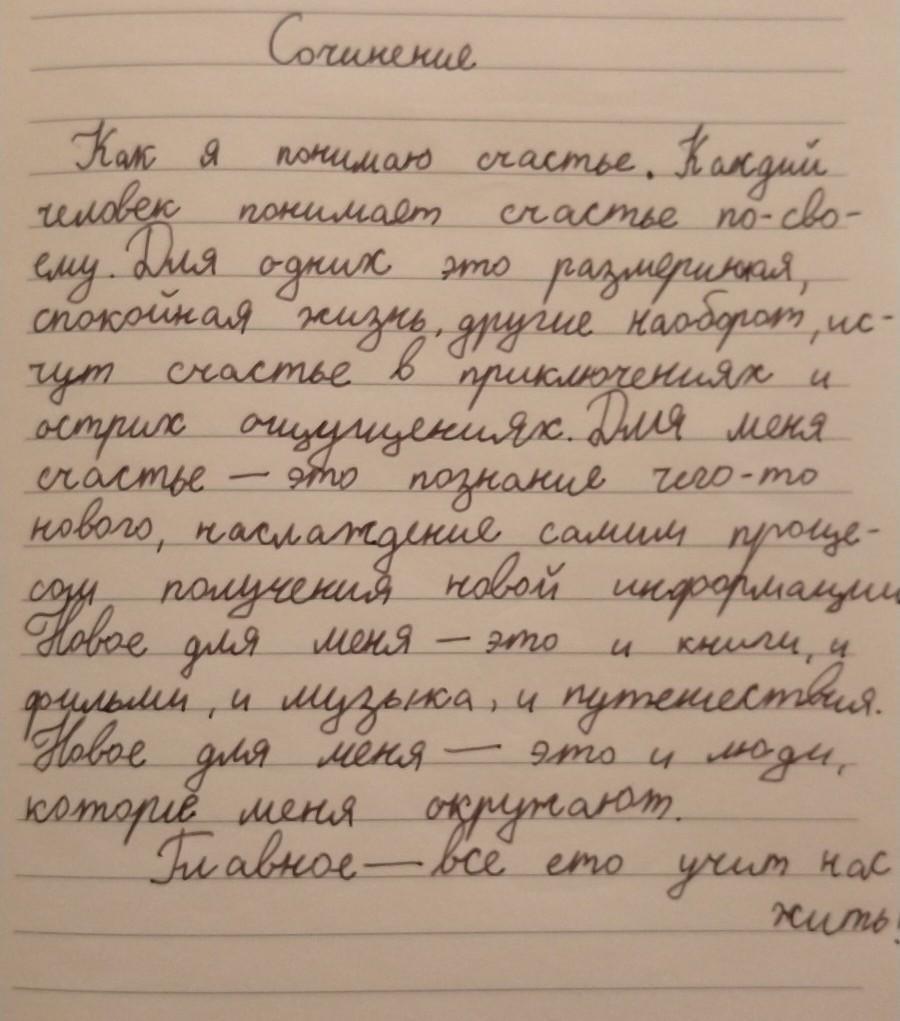 Сочинение
Как я понимаю счастье. Каждий
человек понимает счастье по-сво-
ему. Для одних это размериная,
спокойная жизнь, другие наоборот, ис-
чут счастье в приключениях и
острих ощущениях. Для меня
счастье — это познание чего-то
нового, наслаждение самим проце-
сом получения новой информации
Новое для меня — это и книги, и
фильми, и музыка, и путешествия.
Новое для меня — это и люди,
которие меня окружают.
Главное — все ето учит нас
жить!